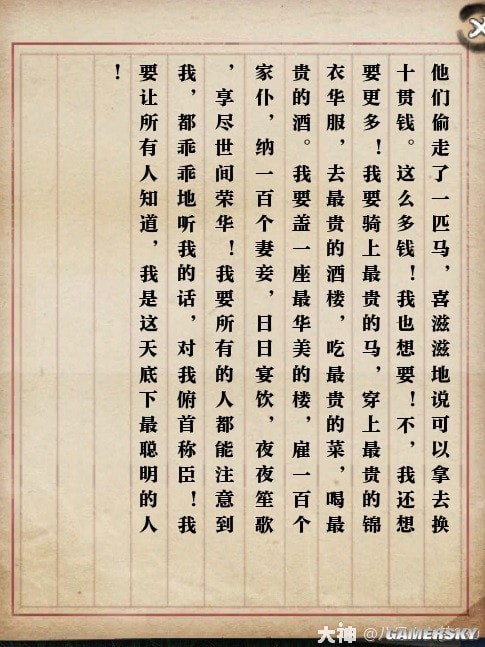 他们偷走了一匹马，喜滋滋地说可以拿去换
十贯钱。这么多钱！我也想要！不，我还想
要更多！我要骑上最贵的马，穿上最贵的锦
衣华服，去最贵的酒楼，吃最贵的菜，喝最
贵的酒。我要盖一座最华美的楼，雇一百个
家仆，纳一百个妻妾，日日宴饮，夜夜笙歌
，享尽世间荣华！我要所有的人都能注意到
我，都乖乖地听我的话，对我俯首称臣！我
要让所有人知道，我是这天底下最聪明的人
！
大神
GAMERSKY